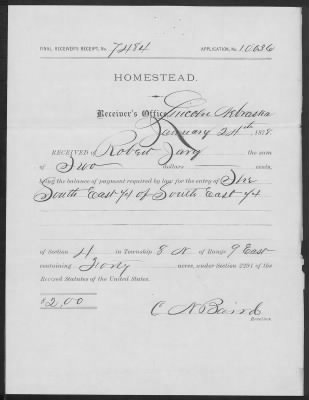 FINAL RECEIVER'S RECEIPT, No. 7484 APPLICATION, No. 10636
HOMESTEAD.
Receiver's Office, Lincoln Nebraska
January 24th, 1878.
RECEIVED of Robert the sum
of Two dollars cents,
being the balance of payment required by law for the entry of The
South East 1/4 of South East 1/4
of Section 4 in Township 8 N of Range 9 East
containing Forty acres, under Section 2291 of the
Revised Statutes of the United States.
$2.00
C N Baird
Receiver.